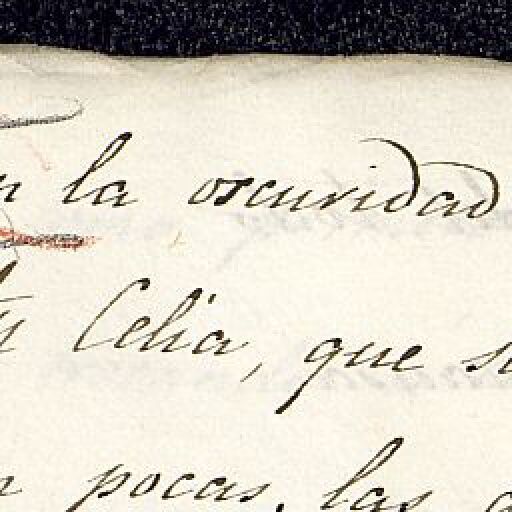 la oscuridad
Celia, que
pocas, las